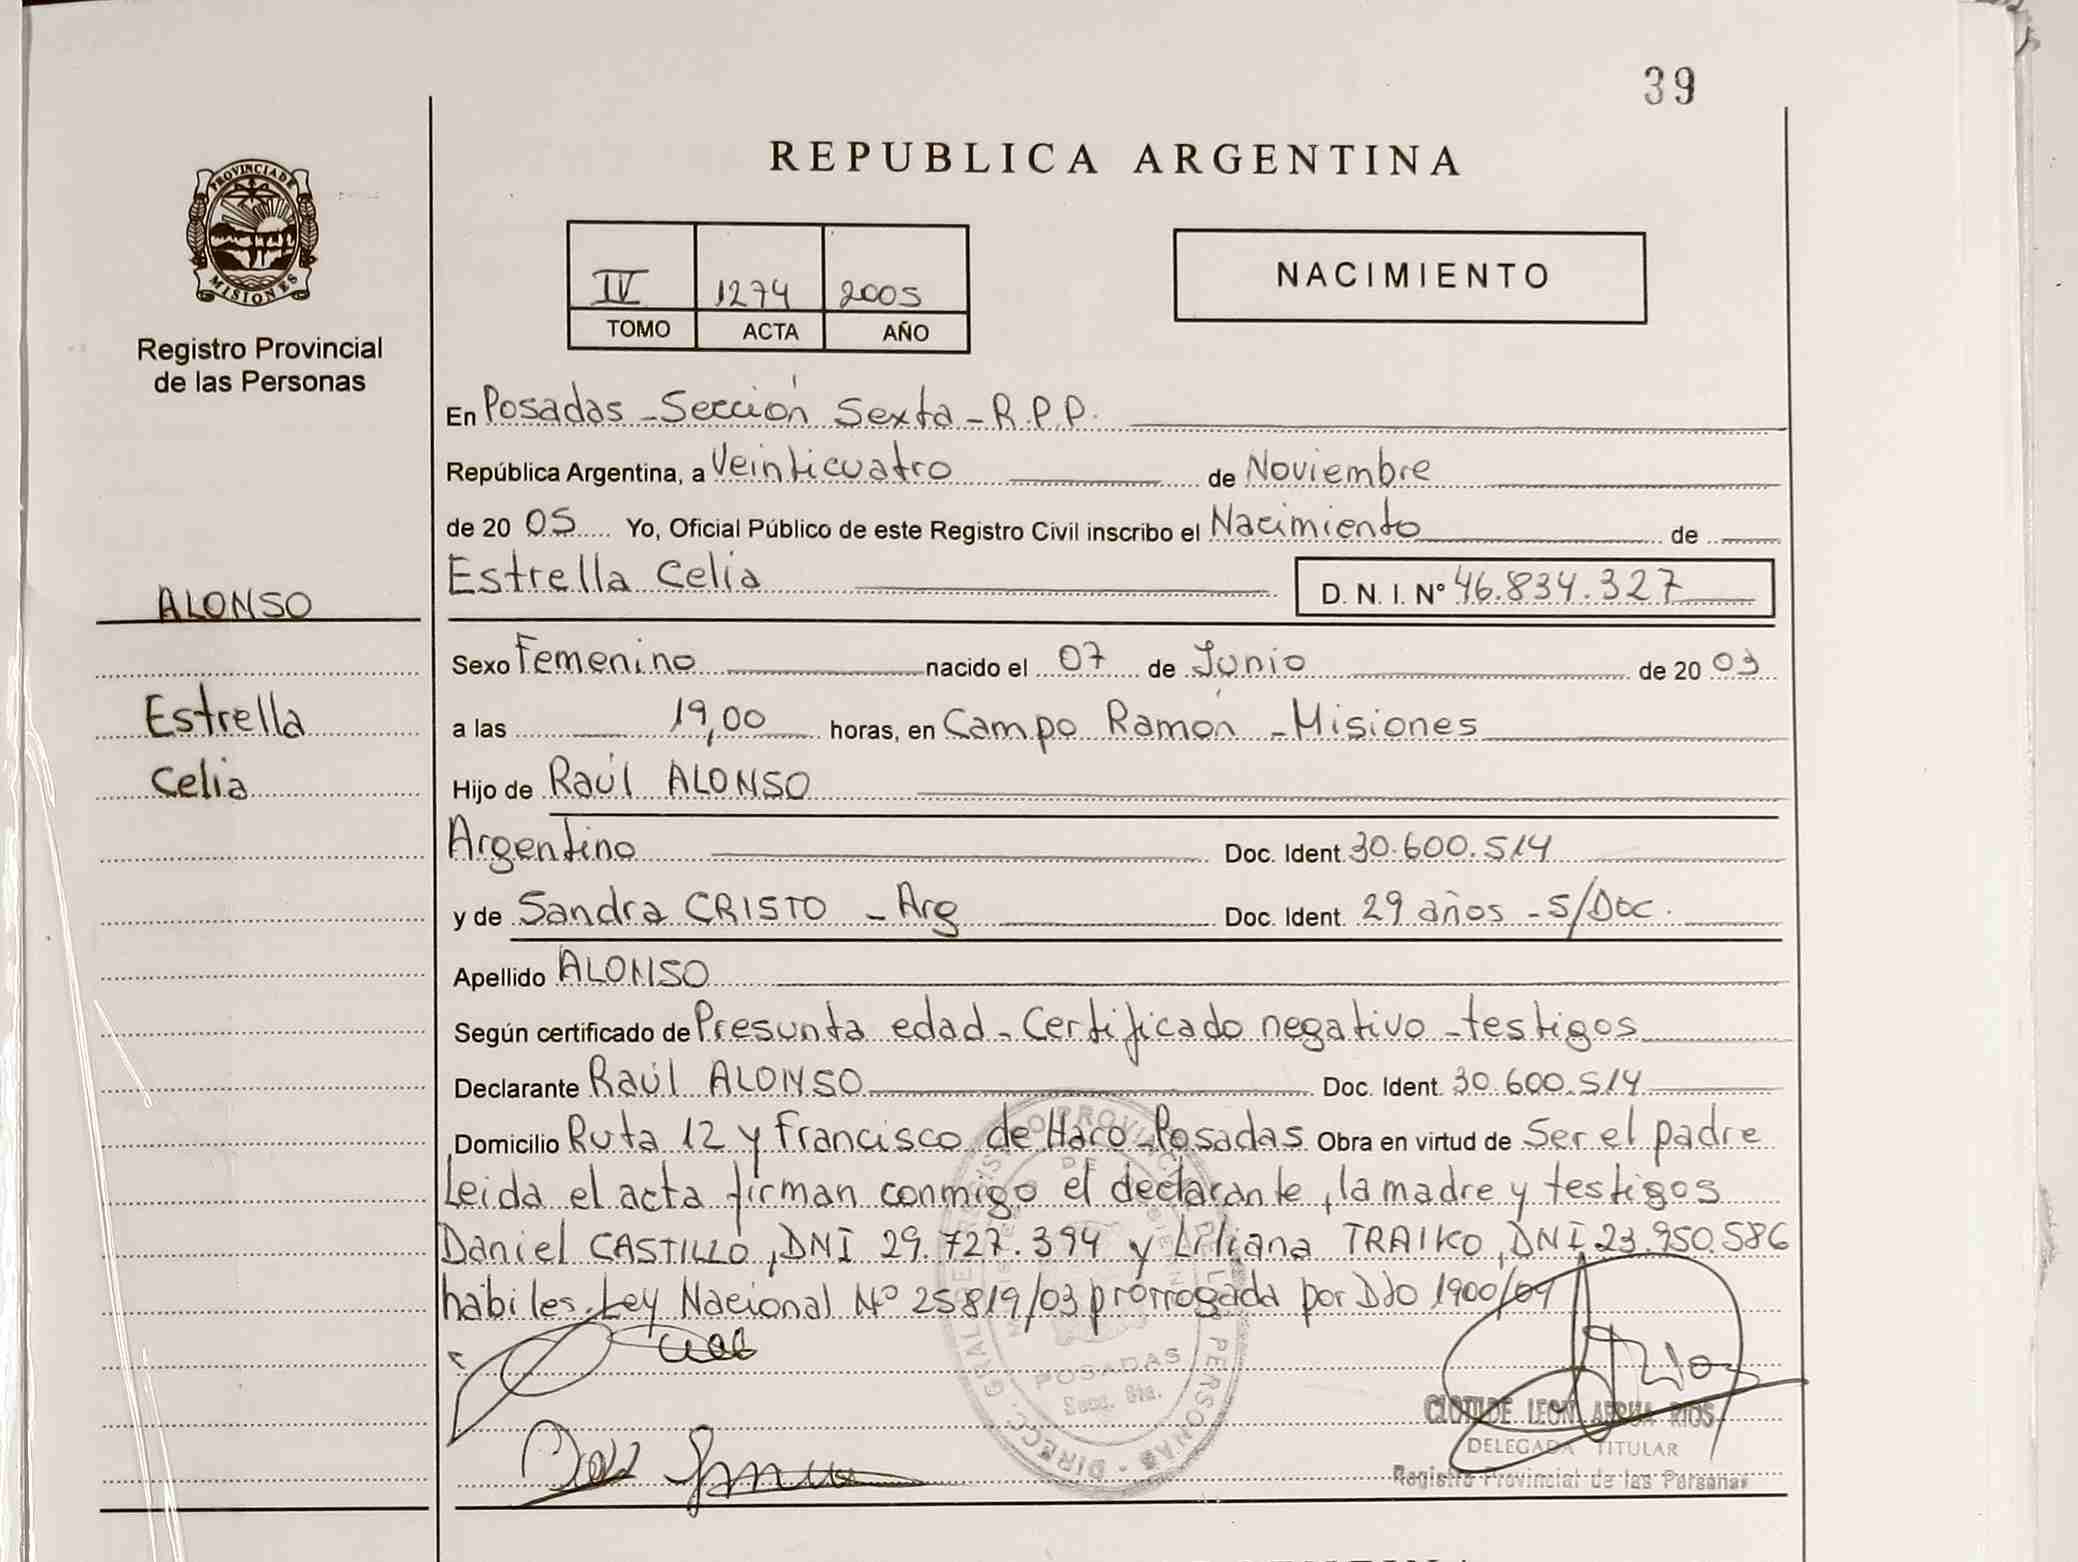 39
REPUBLICA ARGENTINA
PROVINCIA DE
MISIONES
Registro Provincial
de las Personas
IV 1274 2005
TOMO ACTA AÑO
NACIMIENTO
En Posadas - Sección Sexta - R.P.P.
República Argentina, a Veinticuatro de Noviembre
de 20 05 Yo, Oficial Público de este Registro Civil inscribo el Nacimiento de
Estrella Celia D. N. I. Nº 46.834.327
ALONSO
Estrella
Celia
Sexo Femenino nacido el 07 de Junio de 20 03
a las 19,00 horas, en Campo Ramón - Misiones
Hijo de Raúl ALONSO
Argentino Doc. Ident. 30.600.514
y de Sandra CRISTO - Arg Doc. Ident. 29 años - S/Doc.
Apellido ALONSO
Según certificado de Presunta edad - Certificado negativo - testigos
Declarante Raúl ALONSO Doc. Ident. 30.600.514
Domicilio Ruta 12 y Francisco de Haro - Posadas Obra en virtud de Ser el padre
Leida el acta firman conmigo el declarante, la madre y testigos
Daniel CASTILLO, DNI 29.727.394 y Liliana TRAIKO, DNI 23.950.586
habiles. Ley Nacional Nº 25819/03 prorrogada por Dto 1900/04
POSADAS
Secc. 6ta.
CLOTILDE LEON RIOS
DELEGADA TITULAR
Registro Provincial de las Personas